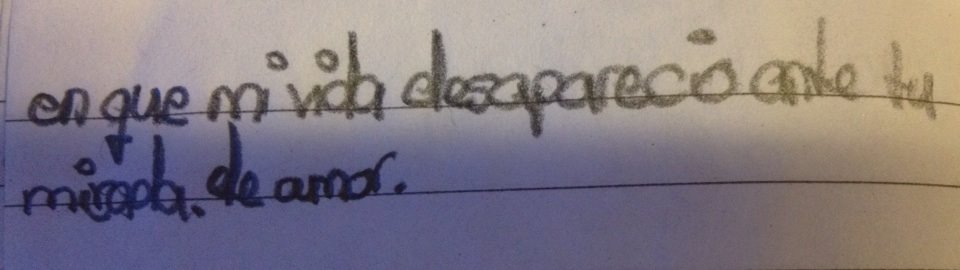 en que mi vida desapareció ante tu
mirada. de amor.